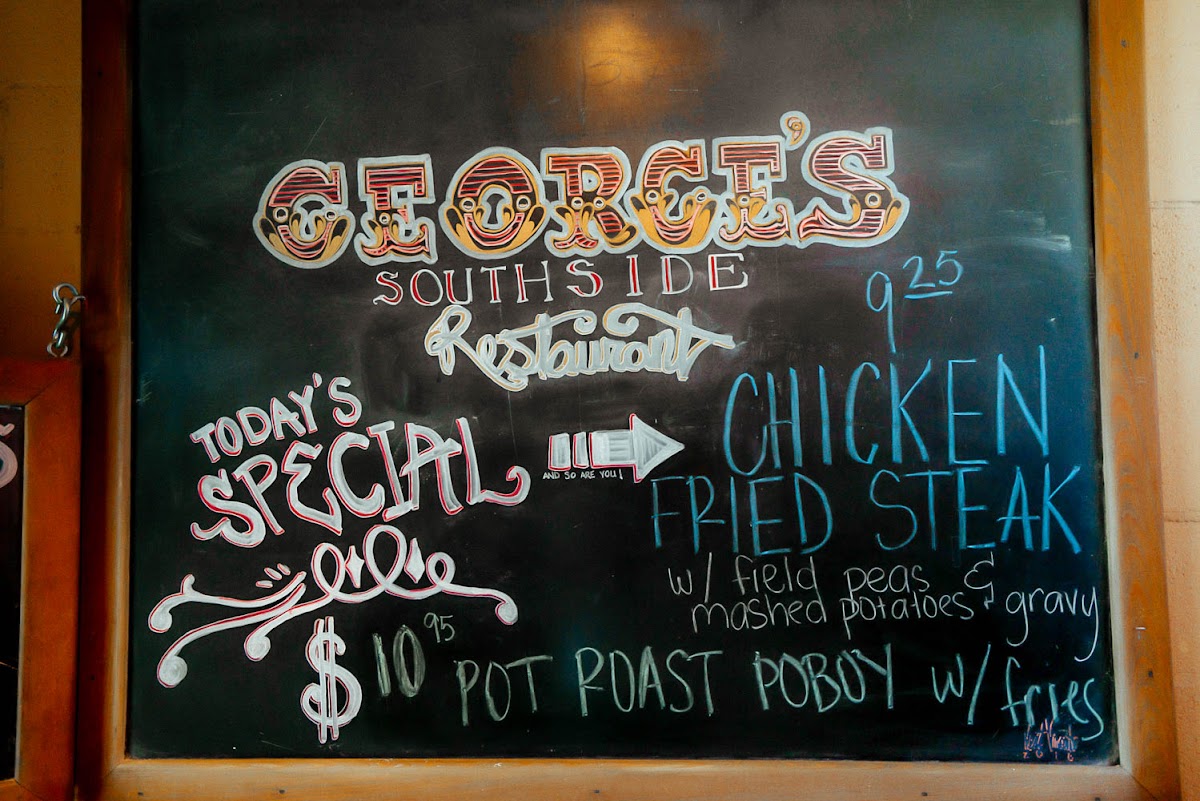 GEORGE'S
SOUTHSIDE
Restaurant
TODAY'S
SPECIAL
AND SO ARE YOU!
9 25
CHICKEN
FRIED STEAK
w/ field peas &
mashed potatoes & gravy
$ 10 95 POT ROAST POBOY w/ fries
2016